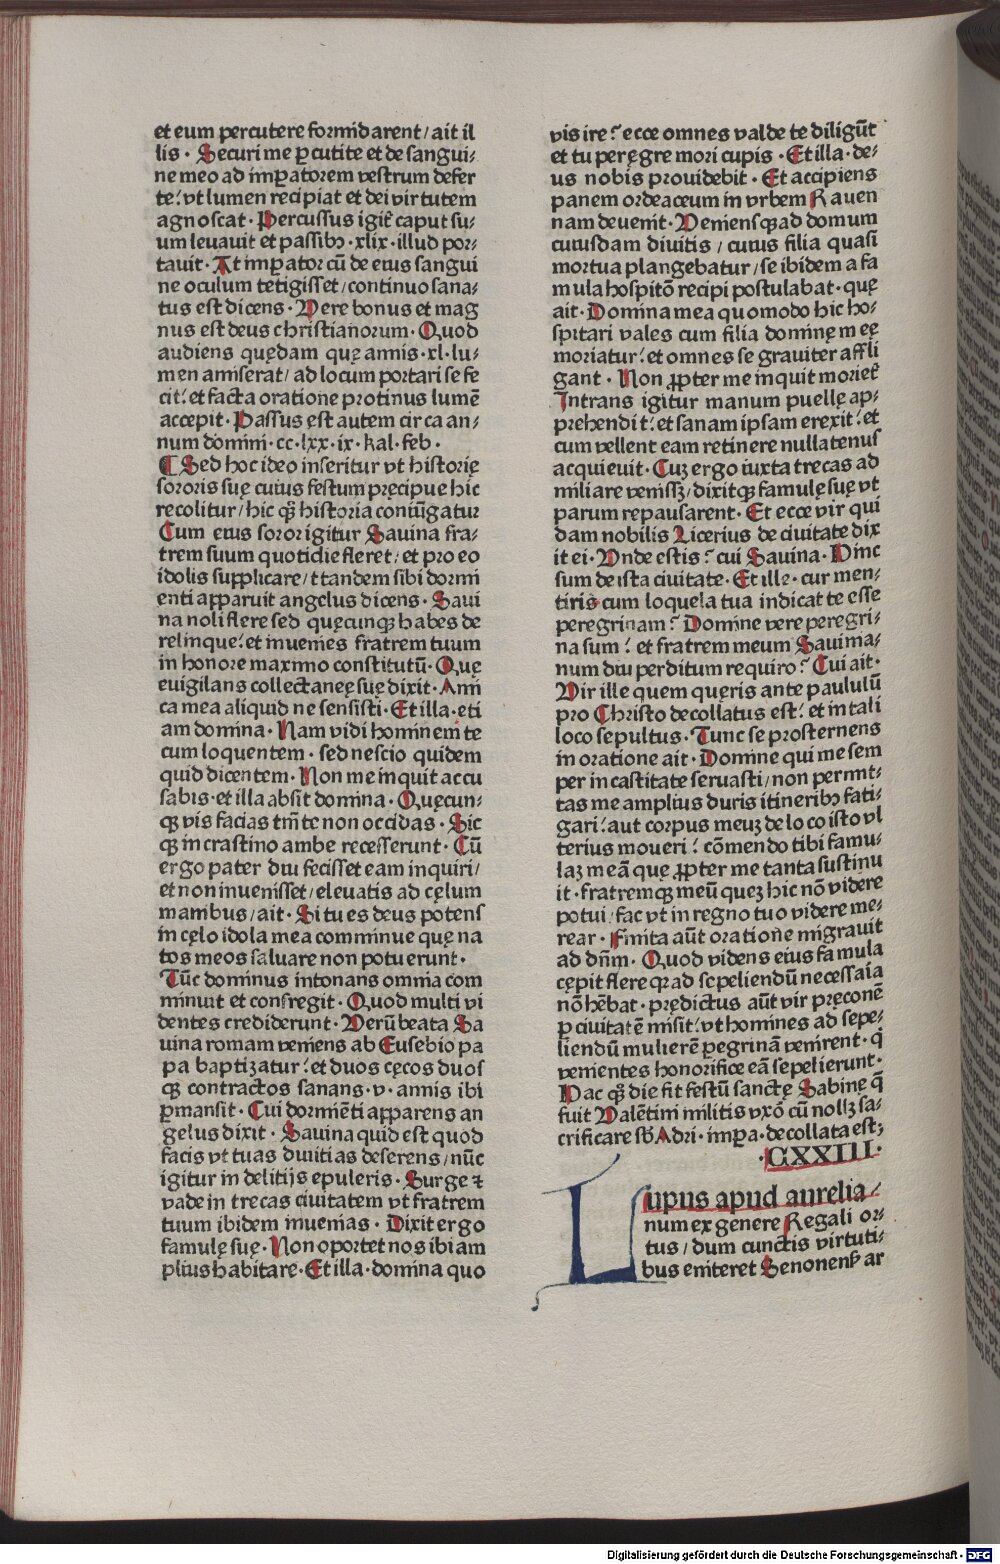 et eum percutere formidarent / ait il
lis · Securi me ꝑcutite et de sangui⸗
ne meo ad imꝑatorem vestrum defer
te : vt lumen recipiat et dei virtutem
agnoscat · Percussus igit᷑ caput su⸗
um leuauit et passibꝫ · xlix · illud por⸗
tauit · At imꝑator cū de eius sangui
ne oculum tetigisset / continuo sana⸗
tus est dicens · Vere bonus et mag
nus est deus christianorum · Quod
audiens quędam quę annis · xl · lu⸗
men amiserat / ad locum portari se fe
cit : et facta oratione protinus lumē
accepit · Passus est autem circa an⸗
num domini · cc · lxx · ix · kal · feb ·
¶ Sed hoc ideo inseritur vt historię
sororis suę cuius festum pręcipue hic
recolitur / hic qꝫ historia coniūgatur
Cum eius soror igitur Sauina fra⸗
trem suum quotidie fleret / et pro eo
idolis supplicare / t tandem sibi dormi
enti apparuit angelus dicens · Saui
na noli flere sed quęcunqꝫ habes de
relinque : et inuenies fratrem tuum
in honore maximo constitutū · Quę
euigilans collectaneę suę dixit · Ami
ca mea aliquid ne sensisti · Et illa · eti
am domina · Nam vidi hominem te
cum loquentem · sed nescio quidem
quid dicentem · Non me inquit accu
sabis · et illa absit domina · Quęcun⸗
qꝫ vis facias tm̄ te non occidas · Sic
qꝫ in crastino ambe recesserunt · Cū
ergo pater diu fecisset eam inquiri /
et non inuenisset / eleuatis ad cęlum
manibus / ait · Si tu es deus potens
in cęlo idola mea comminue quę na
tos meos saluare non potuerunt ·
Tūc dominus intonans omnia com
minuit et confregit · Quod multi vi
dentes crediderunt · Verū beata Sa
uina romam veniens ab Eusebio pa
pa baptizatur : et duos cęcos duos
qꝫ contractos sanans · v · annis ibi
ꝑmansit · Cui dormiēti apparens an
gelus dixit · Sauina quid est quod
facis vt tuas diuitias deserens / nūc
igitur in delitijs epuleris · Surge ⁊
vade in trecas ciuitatem vt fratrem
tuum ibidem inuenias · Dixit ergo
famulę suę · Non oportet nos ibi am
plius habitare · Et illa · domina quo
vis ire ? ecce omnes valde te diligūt
et tu peręgre mori cupis · Et illa · de⸗
us nobis prouidebit · Et accipiens
panem ordeaceum in vrbem Rauen
nam deuenit · Veniensqꝫ ad domum
cuiusdam diuitis / cuius filia quasi
mortua plangebatur / se ibidem a fa
mula hospitō recipi postulabat · quę
ait · Domina mea quomodo hic ho⸗
spitari vales cum filia dominę meę
moriatur : et omnes se grauiter affli
gant · Non ꝓpter me inquit moriet᷑
Intrans igitur manum puellę ap⸗
prehendit : et sanam ipsam erexit : et
cum vellent eam retinere nullatenus
acquieuit · Cuꝫ ergo iuxta trecas ad
miliare venissꝫ / dixitqꝫ famulę suę vt
parum repausarent · Et ecce vir qui
dam nobilis Licerius de ciuitate dix
it ei · Vnde estis ? cui Sauina · Hinc
sum de ista ciuitate · Et ille · cur men⸗
tiris cum loquela tua indicat te esse
peregrinam ? Domine vere peregri⸗
na sum : et fratrem meum Sauinia⸗
num diu perditum requiro ? Cui ait ·
Vir ille quem queris ante paululū
pro Christo decollatus est : et in tali
loco sepultus · Tunc se prosternens
in oratione ait · Domine qui me sem
per in castitate seruasti / non permit⸗
tas me amplius duris itineribꝫ fati⸗
gari : aut corpus meuꝫ de loco isto vl
terius moueri : cōmendo tibi famu⸗
laꝫ meā quę ꝓpter me tanta sustinu
it · fratremqꝫ meū quez hic nō videre
potui / fac vt in regno tuo videre me⸗
rear · Finita aūt oratione migrauit
ad dn̄m · Quod videns eius famula
cępit flere qꝛ ad sepeliendū necessaia
nō hēbat · prędictus aūt vir pręconē
ꝑ ciuitatē misit : vt homines ad sepe⸗
liendū mulierē ꝑegrinā venirent · q̄
venientes honorifice eā sepelierunt ·
Hac qꝫ die fit festū sanctę Sabinę q̄
fuit Valētini militis vxō cū nollꝫ sa⸗
crificare sb̄ Adri · imꝑa · decollata est ;
· CXXIII ·
Lupus apud aurelia⸗
num ex genere Regali or⸗
tus / dum cunctis virtuti⸗
bus eniteret Senonenẜ ar
Digitalisierung gefördert durch die Deutsche Forschungsgemeinschaft - DFG